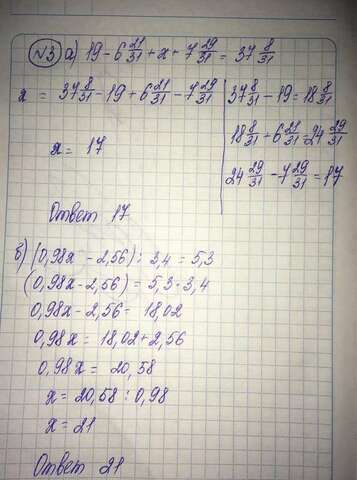 №3 а) 19 - 6 21/31 + х + 7 29/31 = 37 8/31
х = 37 8/31 - 19 + 6 21/31 - 7 29/31
х = 17
37 8/31 - 19 = 18 8/31
18 8/31 + 6 21/31 = 24 29/31
24 29/31 - 7 29/31 = 17
Ответ 17
б) (0,98х - 2,56) : 3,4 = 5,3
(0,98х - 2,56) = 5,3 · 3,4
0,98х - 2,56 = 18,02
0,98х = 18,02 + 2,56
0,98х = 20,58
х = 20,58 : 0,98
х = 21
Ответ 21